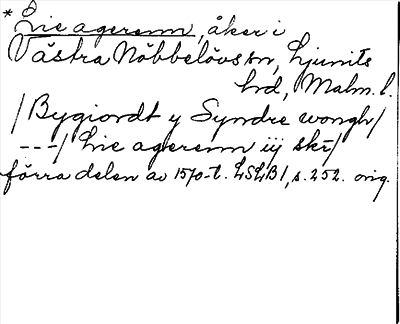 * Lie agerenn, åker i
Västra Nöbbelövs sn, Ljunits
hd, Malm. l.
/Bygiordt y Syndre wongh/
---/ Lie agerenn iij skr/
förra delen av 1570-t. LSLB1, s. 252. orig.